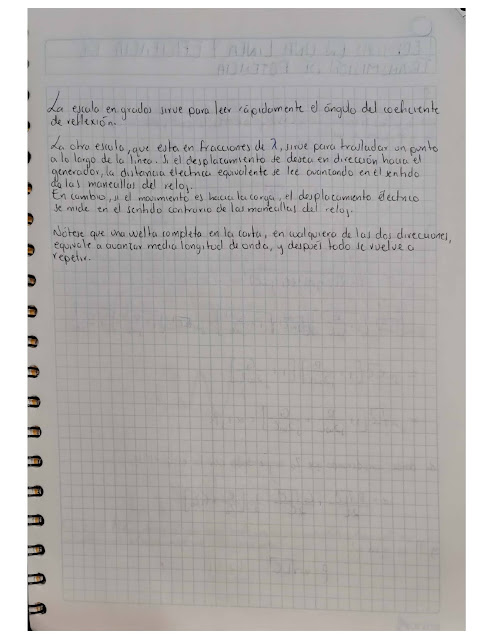 La escala en grados sirve para leer rápidamente el ángulo del coeficiente
de reflexión.
La otra escala, que esta en fracciones de λ, sirve para trasladar un punto
a lo largo de la línea. Si el desplazamiento se desea en dirección hacia el
generador, la distancia eléctrica equivalente se lee avanzando en el sentido
de las manecillas del reloj.
En cambio, si el movimiento es hacia la carga, el desplazamiento eléctrico
se mide en el sentido contrario de las manecillas del reloj.
Nótese que una vuelta completa en la carta, en cualquiera de las dos direcciones,
equivale a avanzar media longitud de onda, y después todo se vuelve a
repetir.